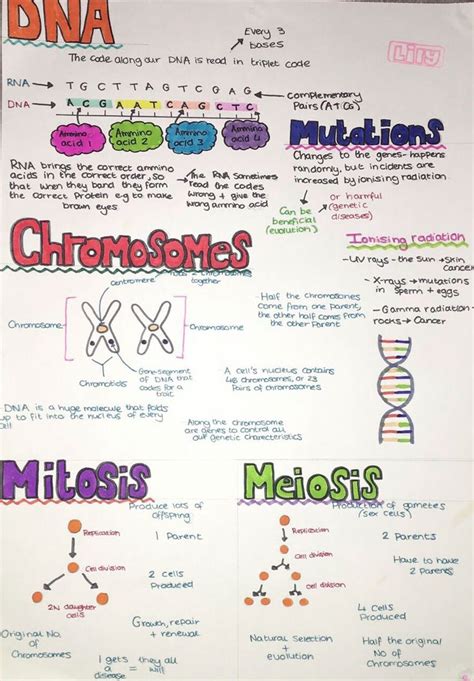 DNA
Every 3
bases
The code along our DNA is read in triplet code
Lily
RNA
T G C T T A G T C G A G
DNA
A C G A A T C A G C T C
complementary
Pairs (AT CG)
Ammino
acid 1
Ammino
acid 2
Ammino
acid 3
Ammino
acid 4
RNA brings the correct ammino
acids in the correct order, so
that when they band they form
the correct Protein e.g to make
brown eyes
The RNA sometimes
read the codes
wrong + give the
wrong ammino acid
Mutations
Changes to the genes- happens
randomly, but incidents are
increased by ionising radiation.
Can be
beneficial
(evolution)
or harmful
(genetic
diseases)
Chromosomes
Centromere
chromosomes
together
Chromosome
Chromosome
Chromatids
Gene-Segment
of DNA that
codes for a
trait.
Half the chromosomes
come from one parent,
the other half comes from
the other Parent
A cell's nucleus contains
46 chromosomes, or 23
Pairs of chromosomes
DNA is a huge molecule that folds
up to fit into the nucleus of every
cell
Along the chromosome
are genes to control all
our genetic characteristics
Ionising radiation
-UV rays - the sun → skin
cancer
- X-rays → mutations
in sperm + eggs
- Gamma radiation -
rocks → Cancer
Mitosis
Produce lots of
offspring
Replication
1 Parent
Cell division
2 cells
Produced
2N daughter
cells
Growth, repair
+ renewal
Original No.
of
Chromosomes
1 gets
a
disease
=
they all
will
Meiosis
Production of gametes
(sex cells)
Replication
2 Parents
Cell division
Have to have
2 Parents
cell division
4 Cells
Produced
Natural selection
+
evolution
Half the original
No of
Chromosomes